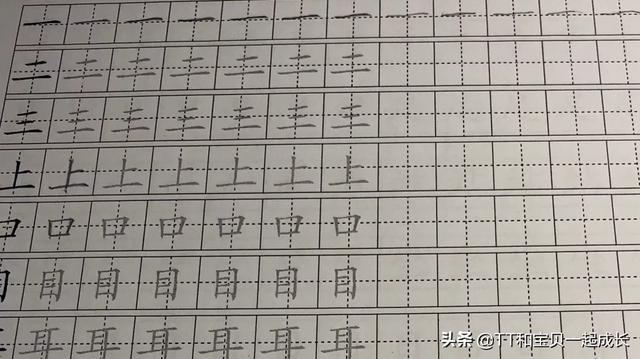 一 一 一 一 一 一 一 一 一 一 一 一
二 二 二 二 二 二 二
三 三 三 三 三 三 三
上 上 上 上 上 上 上
口 口 口 口 口 口 口
目 目 目 目 目 目 目
耳 耳 耳 耳 耳 耳
头条 @TT和宝贝一起成长